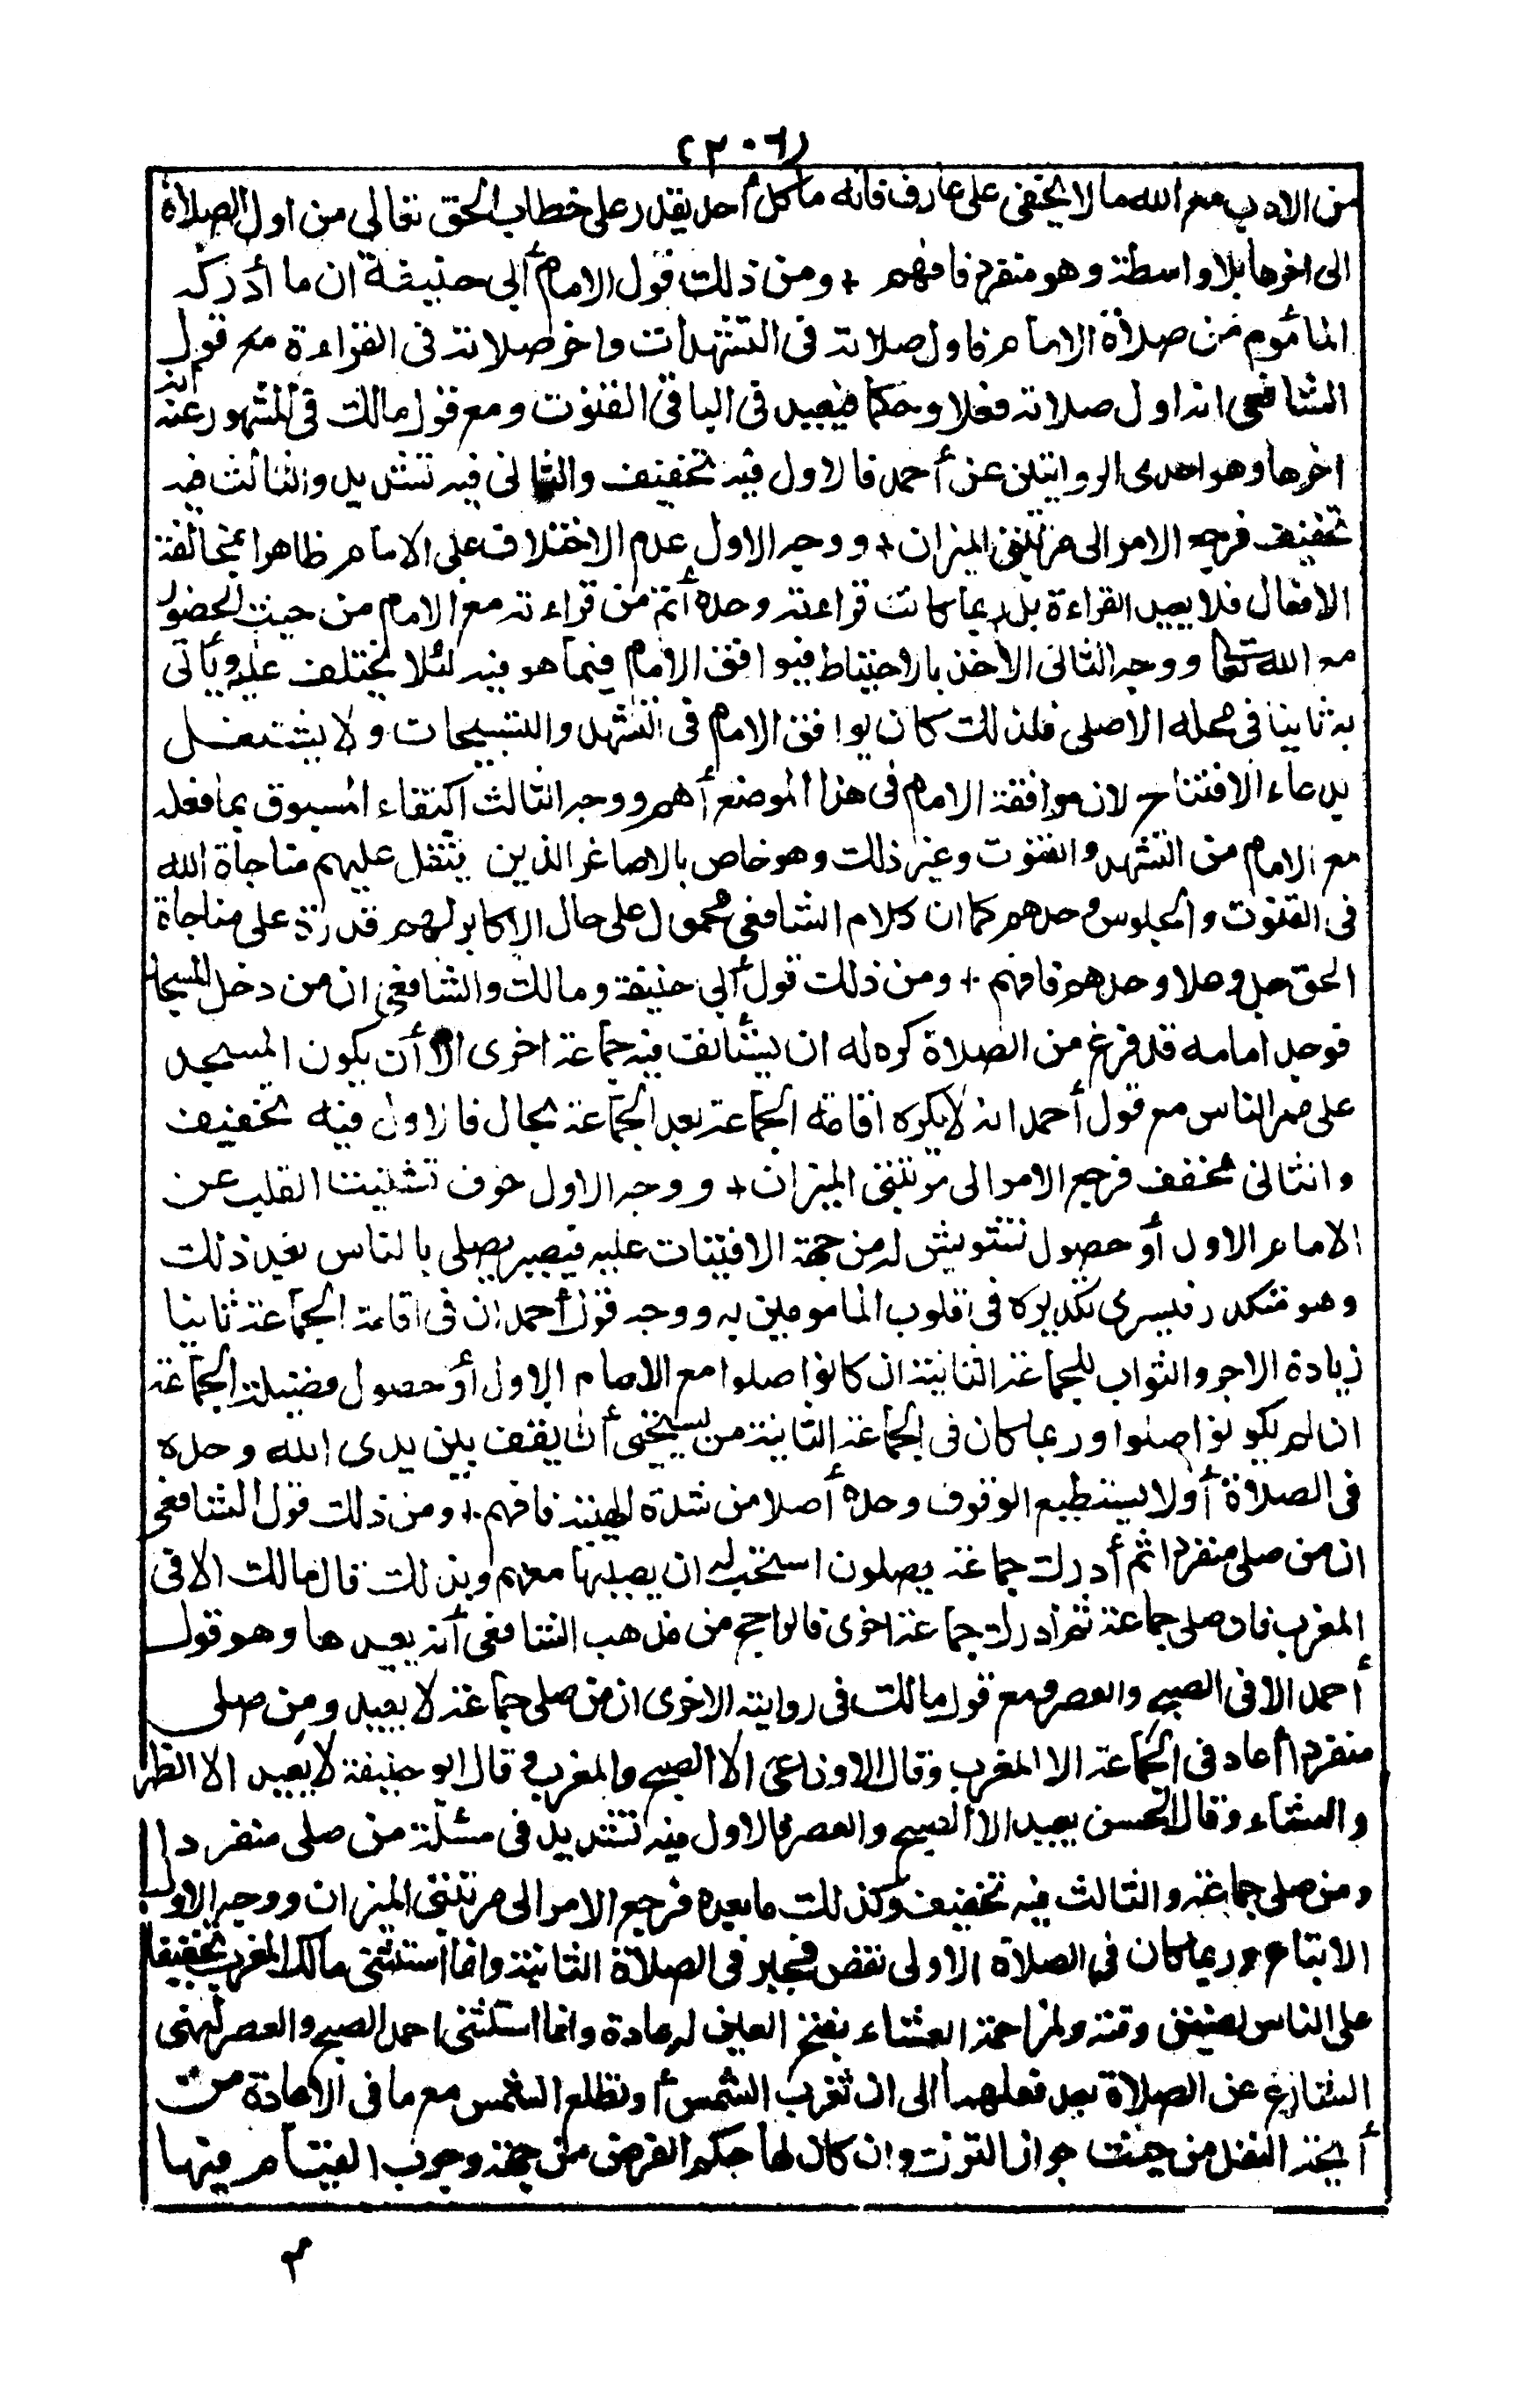 (٢٠٦)
من الادب مع الله ما لا يخفى على عارف فانه ما كل أحد يقدر على خطاب الحق تعالى من اول الصلاة
الى اخرها بلا واسطة وهو منفرد فافهم + ومن ذلك قول الامام أبى حنيفة ان ما أدركه
المأموم من صلاة الامام فاول صلاته فى التشهدات واخر صلاته فى القراءة مع قول
الشافعى انه اول صلاته فعلا وحكما فيعيد فى الباقى القنوت ومع قول مالك فى المشهور عنه انه
اخرها وهو احدى الروايتين عن أحمد فالاول فيه تخفيف والثانى فيه تشديد والثالث فيه
تخفيف فرجع الامر الى مرتبتى الميزان + ووجه الاول عدم الاختلاف على الامام ظاهرا بمخالفة
الافعال فلا يعيد القراءة بل ربما كانت قراءته وحده أتم من قراءته مع الامام من حيث الحضور
مع الله تعا ووجه الثانى الأخذ بالاحتياط فيوافق الامام فيما هو فيه لئلا يختلف عليه ويأتى
به ثانيا فى محله الاصلى فلذلك كان يوافق الامام فى التشهد والتسبيحات ولا يشتغل
بدعاء الافتتاح لان موافقة الامام فى هذا الموضع أهم ووجه الثالث اكتفاء المسبوق بما فعله
مع الامام من التشهد والقنوت وغير ذلك وهو خاص بالاصاغر الذين يثقل عليهم مناجاة الله
فى القنوت والجلوس وحدهم كما ان كلام الشافعى محمول على حال الاكابر لهم قدرة على مناجاة
الحق جل وعلا وحدهم فافهم + ومن ذلك قول أبى حنيفة ومالك والشافعى ان من دخل المسجد
فوجد امامه قد فرغ من الصلاة كره له ان يستأنف فيه جماعة اخرى الا أن يكون المسجد
على ممر الناس مع قول أحمد انه لا يكره اقامة الجماعة بعد الجماعة بحال فالاول فيه تخفيف
والثانى مخفف فرجع الامر الى مرتبتى الميزان + ووجه الاول خوف تشتيت القلب عن
الامام الاول أو حصول تشويش له من جهة الافتيات عليه فيصير يصلى بالناس بغير ذلك
وهو متكدر فيسرى تكديره فى قلوب المامومين به ووجه قول أحمد ان فى اقامة الجماعة ثانيا
زيادة الاجر والثواب للجماعة الثانية ان كانوا صلوا مع الامام الاول أو حصول فضيلة الجماعة
ان لم يكونوا صلوا وربما كان فى الجماعة الثانية من يستحيى أن يقف بين يدى الله وحده
فى الصلاة أو لا يستطيع الوقوف وحده أصلا من شدة الهيبة فافهم + ومن ذلك قول الشافعى
ان من صلى منفردا ثم أدرك جماعة يصلون استحب له ان يصليها معهم وبذلك قال مالك الا فى
المغرب فان صلى جماعة ثم ادرك جماعة اخرى فالراجح من مذهب الشافعى أنه يعيدها وهو قول
أحمد الا فى الصبح والعصر ومع قول مالك فى روايته الاخرى ان من صلى جماعة لا يعيد ومن صلى
منفردا أعاد فى الجماعة الا المغرب وقال الاوزاعى الا الصبح والمغرب وقال ابو حنيفة لا يعيد الا الظهر
والعشاء وقال الحسن يعيد الا الصبح والعصر فالاول فيه تشديد فى مسئلة من صلى منفردا
ومن صلى جماعة والثالث فيه تخفيف وكذلك ما بعده فرجع الامر الى مرتبتى الميزان ووجه الاول
الاتباع وربما كان فى الصلاة الاولى نقص فيجبر فى الصلاة الثانية وانما استثنى مالك المغرب تخفيفا
على الناس لضيق وقته ولمزاحمة العشاء بفتح العين له عادة وانما استثنى احمد الصبح والعصر لنهى
الشارع عن الصلاة بعد فعلهما الى ان تغرب الشمس أو تطلع الشمس مع ما فى الاعادة من
أيحة النفل من حيث جواز الترك وان كان لها حكم الفرض من جهة وجوب القيام فيها